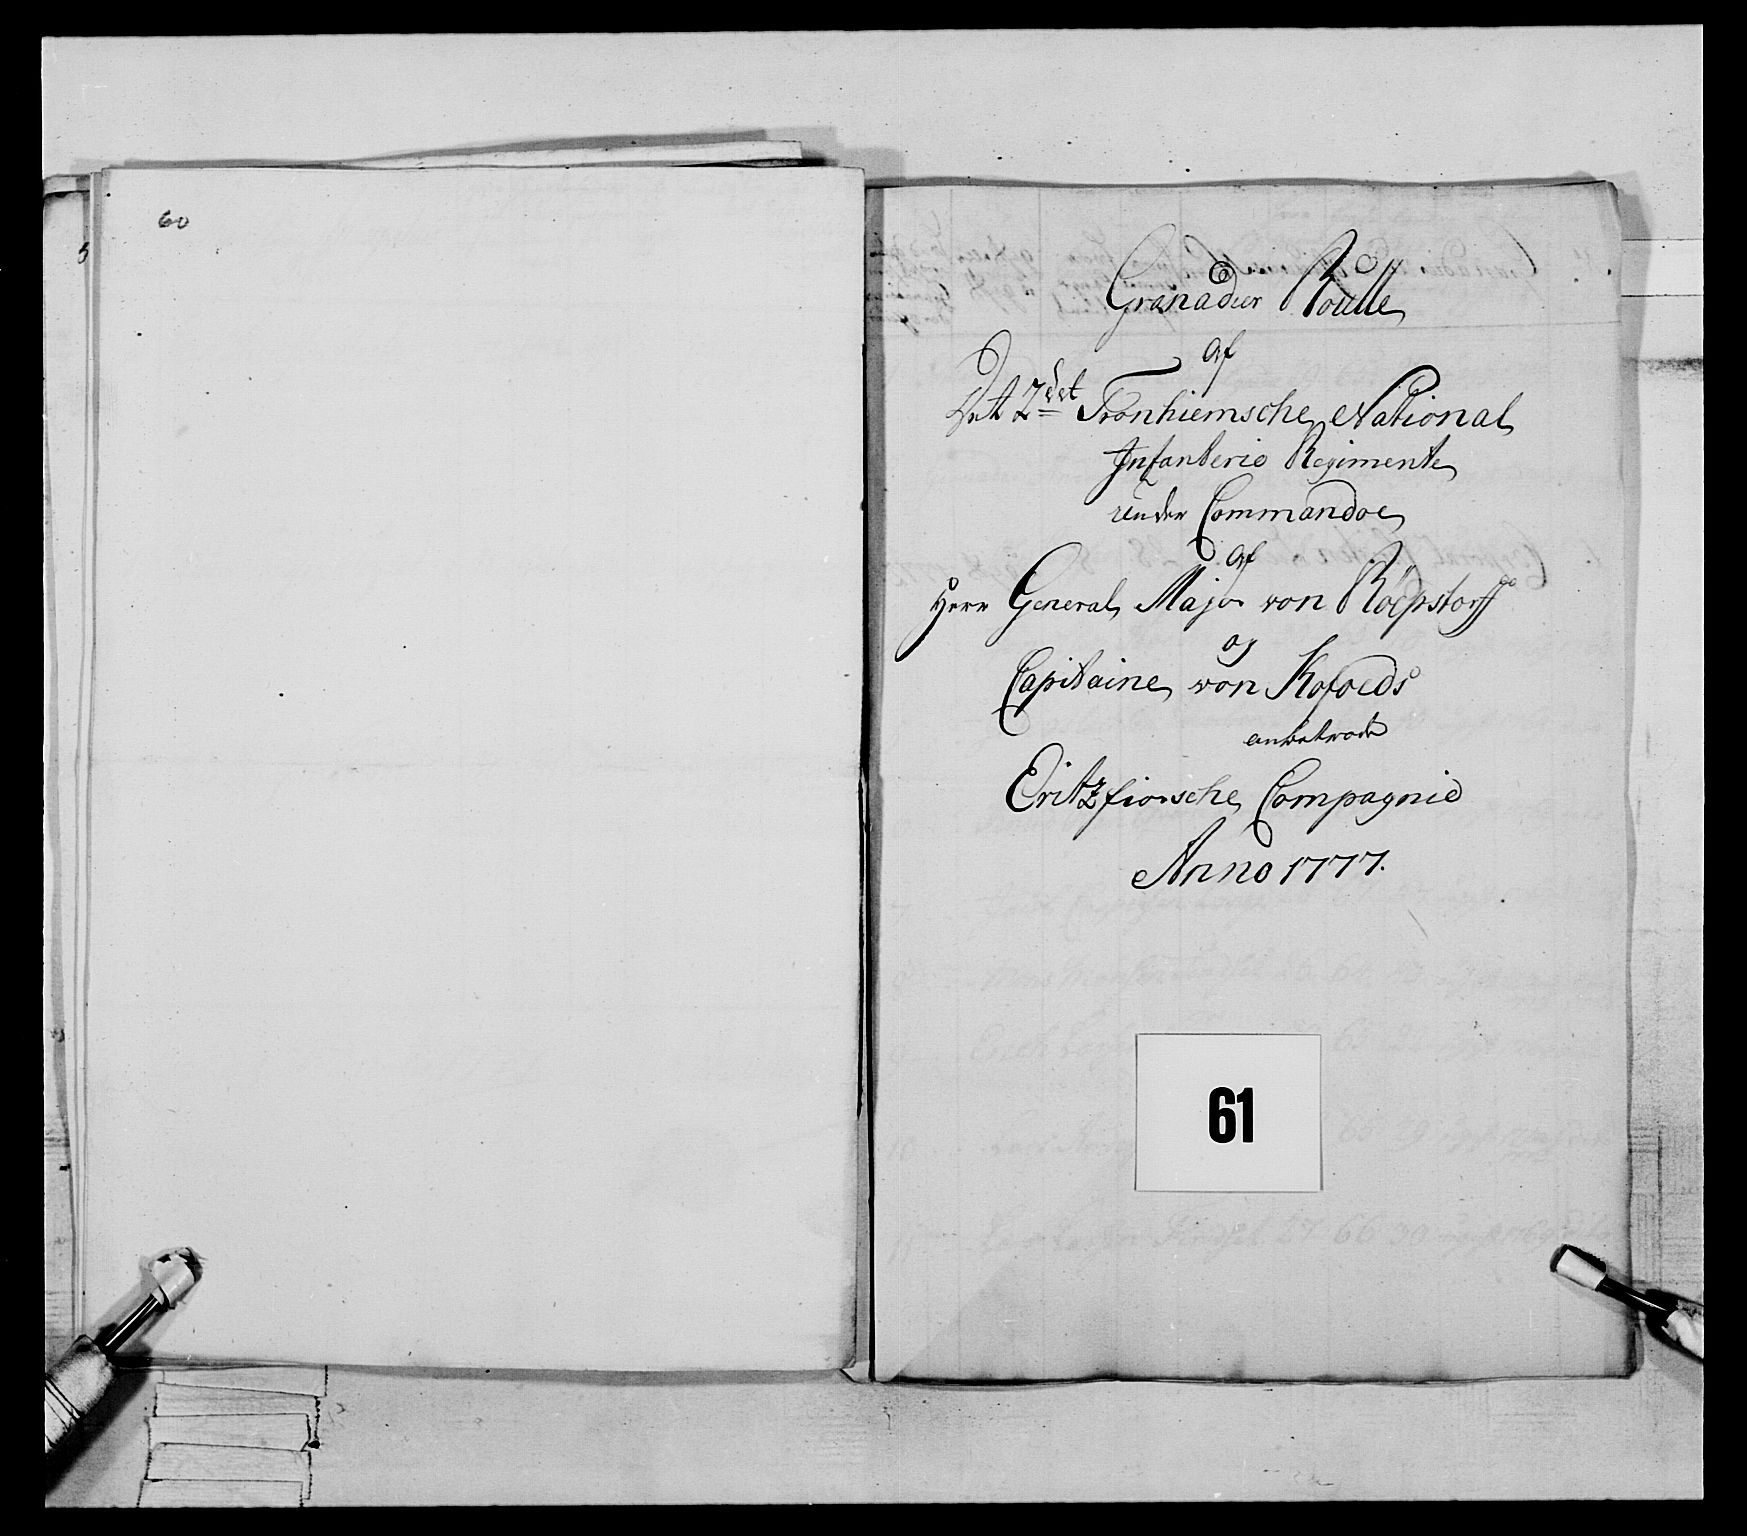 60
Granadier Roulle
af
Det 2det Tronhiemsche National
Infanterie Regimente
under Commandoe
af
Herr General Major von Röepstorff
og
Capitaine von Kofoeds
anbetroede
Øritzfiorsche Compagnie
Anno 1777.
61